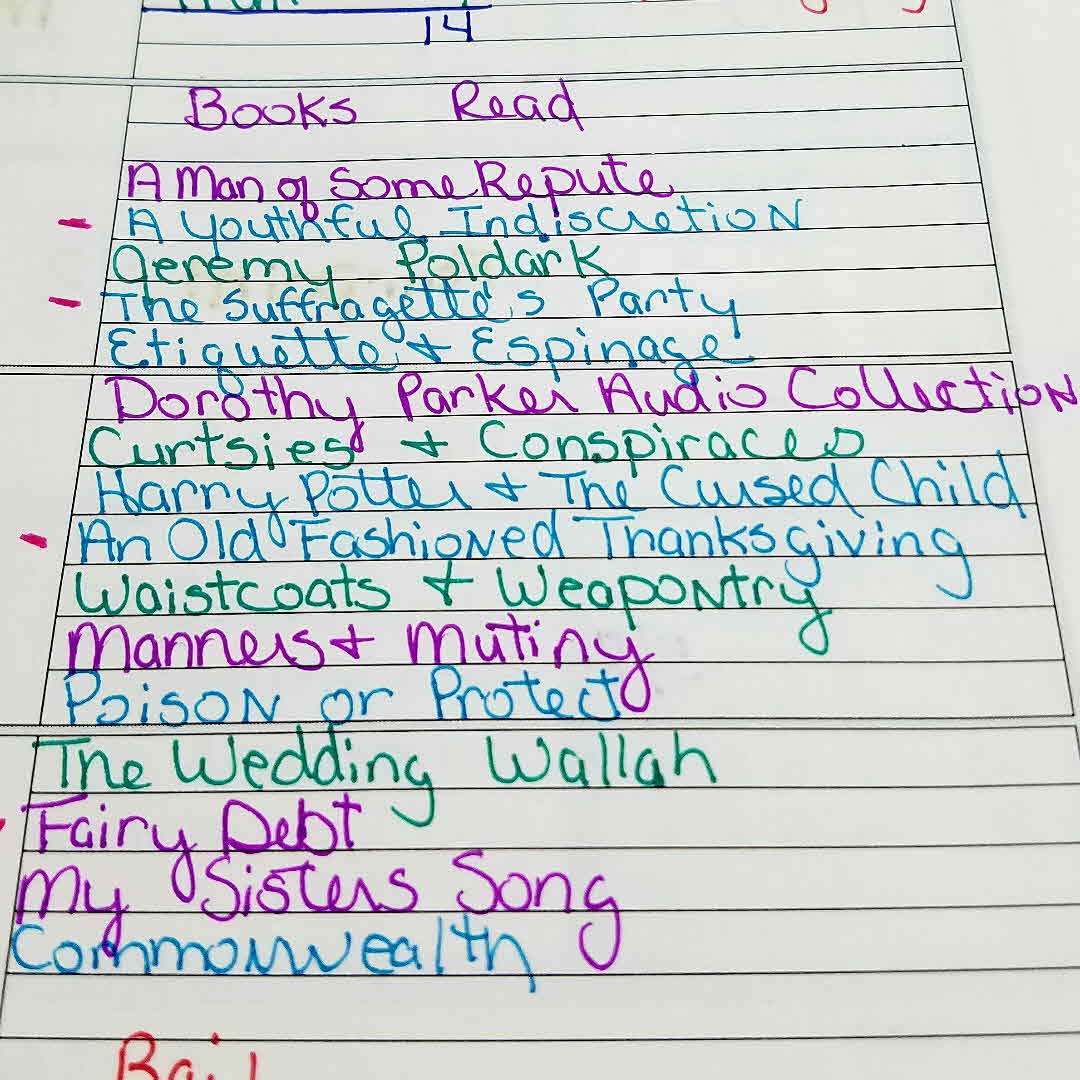 14
Books Read
A Man of Some Repute
- A Youthful Indiscretion
Jeremy Poldark
- The Suffragette's Party
Etiquette & Espinage
Dorothy Parker Audio Collection
Curtsies & Conspiraces
Harry Potter & The Cursed Child
- An Old Fashioned Thanksgiving
Waistcoats & Weapontry
Manners & Mutiny
Poison or Protect
The Wedding Wallah
Fairy Debt
My Sisters Song
Commonwealth